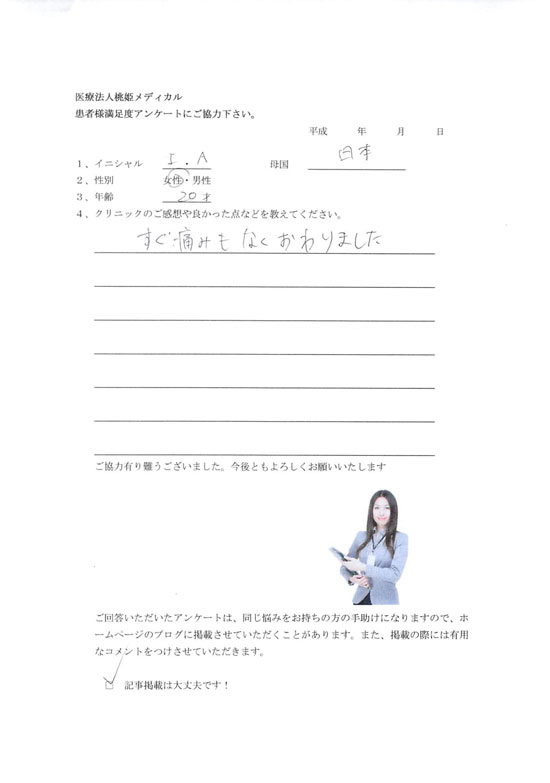 医療法人桃姫メディカル
患者様満足度アンケートにご協力下さい。
平成 年 月 日
1、イニシャル I.A 母国 日本
2、性別 女性・男性
3、年齢 20才
4、クリニックのご感想や良かった点などを教えてください。
すぐ痛みもなくおわりました
ご協力有り難うございました。今後ともよろしくお願いいたします
ご回答いただいたアンケートは、同じ悩みをお持ちの方の手助けになりますので、ホ
ームページのブログに掲載させていただくことがあります。また、掲載の際には有用
なコメントをつけさせていただきます。
□ 記事掲載は大丈夫です！